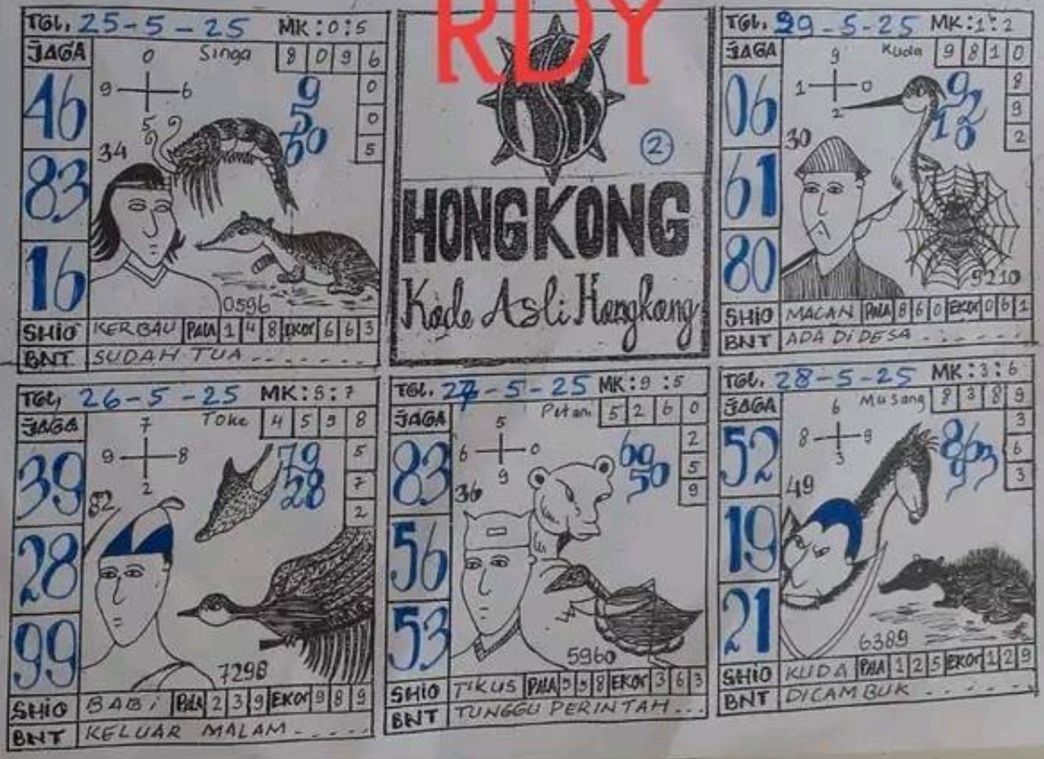 RDY
TGL, 25-5-25 MK:0:5
JAGA 0 Singa 8 0 9 6
46 9 6 9 0
5 5 0
34 60 5
83
16
0596
SHIO KERBAU PALA 1 4 8 EKOR 6 6 3
BNT SUDAH TUA ........
2
HONGKONG
Kode Asli Hongkong
TGL, 29-5-25 MK:1:2
JAGA 9 Kuda 9 8 1 0
06 1 0 8
2 9
30 2
61
80
9210
SHIO MACAN PALA 8 6 0 EKOR 0 6 1
BNT ADA DI DESA ........
TGL, 26-5-25 MK:5:7
JAGA 7 Toke 4 5 9 8
39 9 8 79 5
2 28 7
82 2
28
99
7298
SHIO BABI PALA 2 3 9 EKOR 9 8 9
BNT KELUAR MALAM ........
TGL, 27-5-25 MK:9:5
JAGA 5 Petani 5 2 6 0
83 6 0 69 2
9 50 5
36 9
56
53
5960
SHIO TIKUS PALA 5 9 8 EKOR 3 6 3
BNT TUNGGU PERINTAH...
TGL, 28-5-25 MK:3:6
JAGA 6 Musang 8 3 8 9
52 8 9 863 3
3 93 6
49 3
19
21
6389
SHIO KUDA PALA 1 2 5 EKOR 1 2 9
BNT DICAMBUK ........